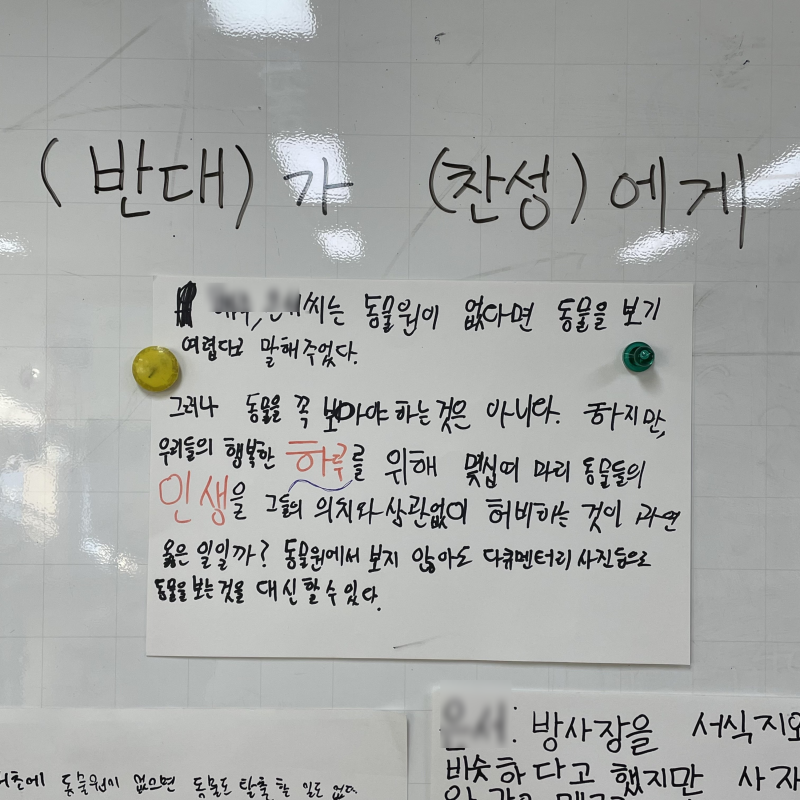 (반대)가 (찬성)에게
씨는 동물원이 없다면 동물을 보기
여렵다고 말해주었다.
그러나 동물을 꼭 봐야하는것은 아니다. 하지만,
우리들의 행복한 하루를 위해 몇십여 마리 동물들의
인생을 그들의 의지와 상관없이 허비하는 것이 과연
옳은 일일까? 동물원에서 보지 않아도 다큐멘터리 사진등으로
동물을 보는것을 대신할수있다.
동물원이 없으면 동물도 탈출 할 일도 없다.
: 방사장을 서식지와
비슷하다고 했지만 사자